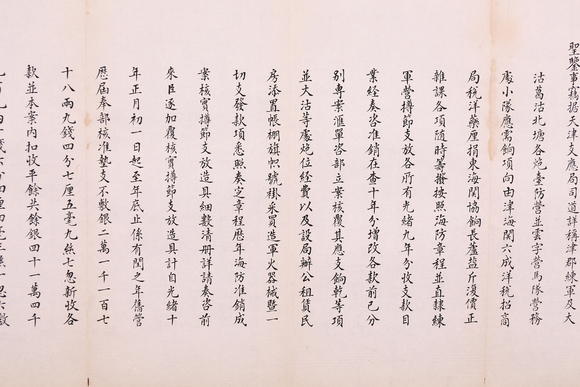 聖鑒事竊據天津支應局司道詳稱津郡練軍及大
沽葛沽北塘各炮臺防營並雲字營馬隊營務
處小隊應需餉項向由津海關六成洋稅招商
局稅洋藥厘捐東海關協餉長蘆鹽斤復價正
雜課各項隨時籌撥按照海防章程並直隸練
軍營撙節支放各所有光緒九年分收支款目
業經奏咨准銷在案十年分增改各款前已分
別專案滙單咨部立案核覆其應支餉乾等項
並大沽等處炮位經費以及設局辦公租賃民
房添置帳棚旗幟號褂采買造軍火器械暨一
切支發款項悉照奏定章程歷年海防准銷成
案核實撙節支放造具細數清册詳請奏咨前
來臣逐加覆核實撙節支放造具計自光緒十
年正月初一日起至年底止係有閏之年舊管
歷屆奉部核准墊支不敷銀二萬一千一百七
十八兩九錢四分七厘五毫九絲七忽新收各
款並本案内扣收平餘共餘銀四十一萬四千